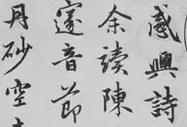 感興詩
余讀陳
邃音節
丹砂空